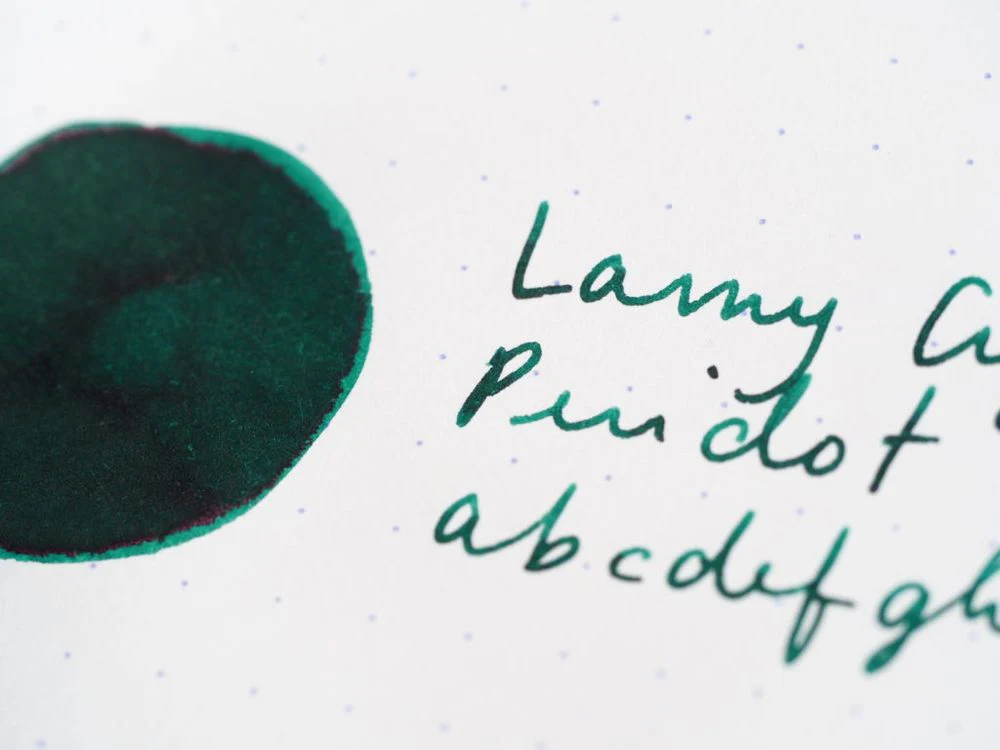 Lamy
Peridot
abcdefgh